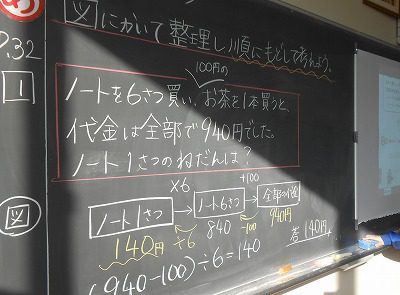 め
図にかいて整理し、順にもどして考えよう。
P.32
1
100円の
ノートを6さつ買い、お茶を1本買うと、
代金は全部で940円でした。
ノート1さつのねだんは？
×6 +100
図
ノート1さつ → ノート6さつ → 全部の代金
140円 ÷6 840 -100 940円
答 140円
(940-100)÷6=140